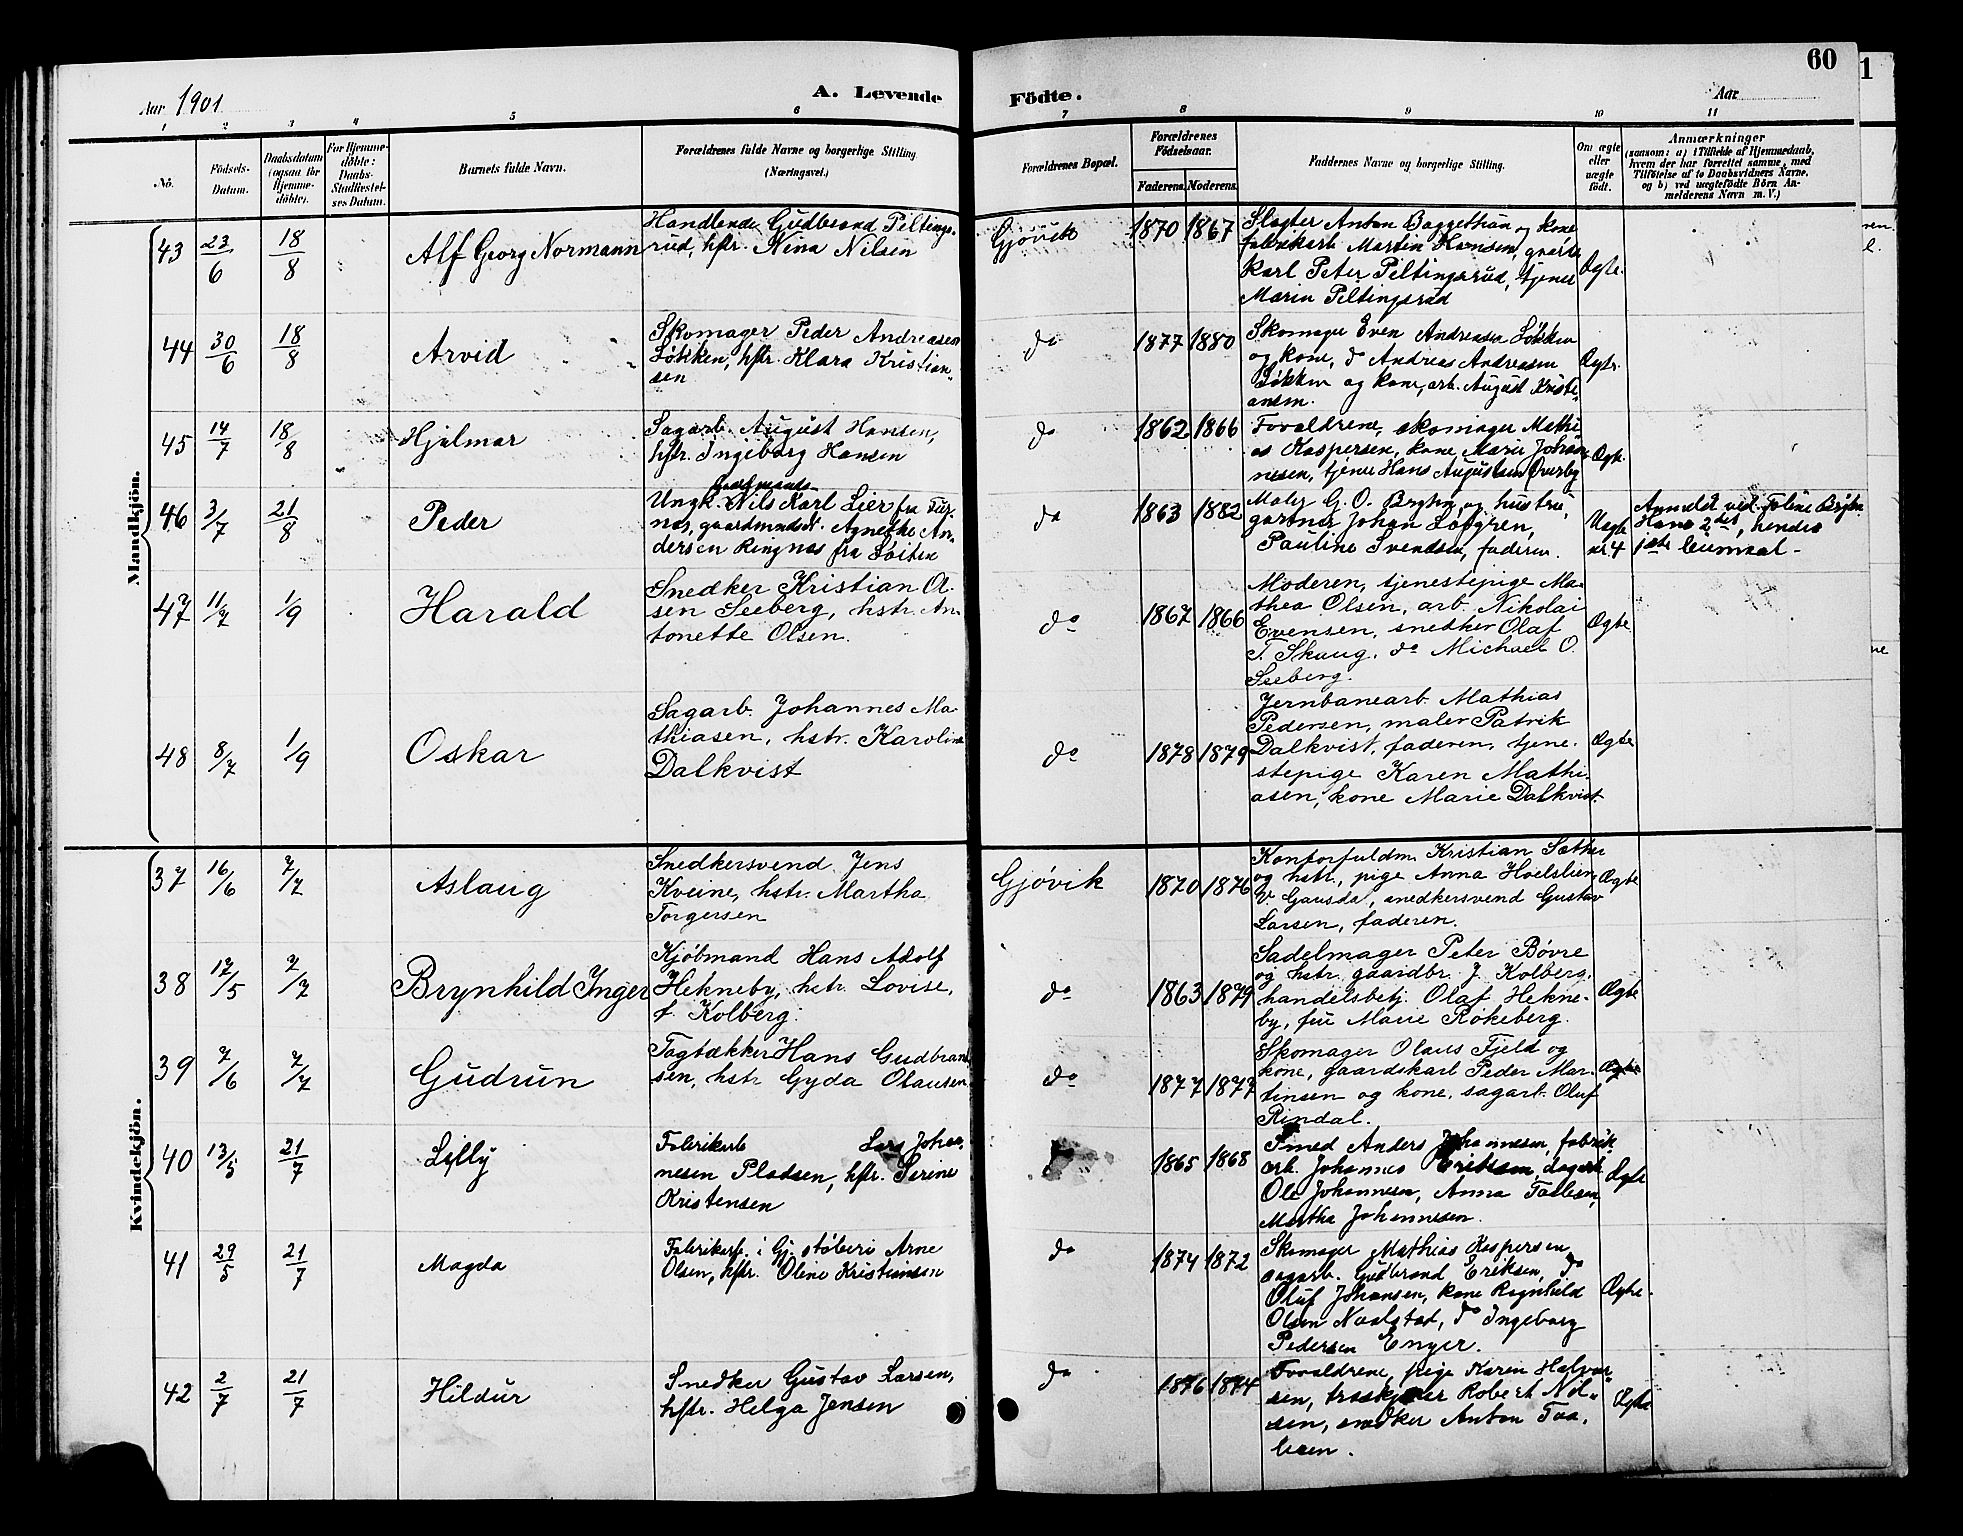 60
1
Aar 1901
A. Levende
Födte.
Aar
1 2 3 4 5 6 7 8 9 10 11
No.
Födsels-
Datum.
Daabsdatum
(ogsaa for
Hjemme-
döbte).
For Hjemme-
döbte:
Daabs-
Stadfæstel-
ses Datum.
Barnets fulde Navn.
Forældrenes fulde Navne og borgerlige Stilling
(Næringsvei.)
Forældrenes Bopæl.
Forældrenes
Födselsaar.
Faderens. Moderens.
Faddernes Navne og borgerlige Stilling.
Om ægte
eller
uægte
födt.
Anmærkninger
(saasom: a) i Tilfælde af Hjemmedaab,
hvem der har forrettet samme, med
Tilföielse af to Daabsvidners Navne,
og b) ved uægtefödte Börn An-
melderens Navn m. V.)
Mandkjön.
43 23/6 18/8 Alf Georg Normann
Handlende Gudbrand Peltings-
rud, hstr. Nina Nilsen
Gjøvik 1870 1867
Slagter Anton Baggethun og kone
fabrikarb Martin Hansen, gaards
karl Peter Peltingsrud, tjener
Marin Peltingsrud
Ægte.
44 30/6 18/8 Arvid
Skomager Peder Andreasen
Løkken, hstr. Klara Kristian-
sen
do 1877 1880
Skomager Even Andreasen Løkken
og kone, do Andreas Andreasen
Løkken og kone, arb. August Kristi-
ansen.
Ægte.
45 14/7 18/8 Hjalmar
Sagarb. August Hansen,
hstr. Ingeborg Hansen
do 1862 1866
Forældrene, skomager Mathi
as Kaspersen, kone Marie Johan-
nesen, tjener Hans Augustsen Overby
Ægte.
46 3/7 21/8 Peder
Ungk. Nils Karl Lier fra Fur-
nes, gaardmandsd. Agnethe An-
dersen Ringnes fra Løiten
do 1863 1882
Maler G. O. Bryhn og hustru,
gartner Johan Løfgren,
Pauline Svendsen, faderen.
Uægte
nr. 4
Anmeldt ved Foline Bryhn
Hans 2det, hendes
1ste leiermaal -
47 11/7 1/9 Harald
Snedker Kristian Ol-
sen Seeberg, hstr. An-
tonette Olsen.
do 1867 1866
Moderen, tjenestepige Ma-
thea Olsen, arb. Nikolai
Evensen, snedker Olaf
T. Skaug, do Michael O.
Seeberg.
Ægte
48 8/7 1/9 Oskar
Sagarb. Johannes Ma-
thiasen, hstr. Karoline
Dalkvist
do 1878 1879
Jernbanearb. Mathias
Pedersen, maler Patrik
Dalkvist, faderen, tjene-
stepige Karen Mathi-
asen, kone Marie Dalkvist
Ægte
Kvindekjön.
37 16/6 7/7 Aslaug
Snedkersvend Jens
Kveine, hstr. Martha
Torgersen
Gjøvik 1870 1876
Kontorfuldm. Kristian Sæther
og hstr., pige Anna Hoelslien
V. Gausda, snedkersvend Gustav
Larsen, faderen.
Ægte
38 17/5 7/7 Brynhild Inger
Kjøbmand Hans Adolf
Hekneby, hstr. Lovise,
f. Kolberg.
do 1863 1879
Sadelmager Peter Bøvre
og hstr. gaardbr. J. Kolberg,
handelsbetj. Olaf Hekne-
by, fru Marie Røkeberg.
Ægte
39 7/6 7/7 Gudrun
Tagtækker Hans Gudbrand
sen, hstr. Gyda Olausen
do 1877 1877
Skomager Olaus Fjeld og
kone, gaardskarl Peder Mar-
tinsen og kone, sagarb. Oluf
Rindal.
Ægte
40 13/5 21/7 Lilly
Fabrikarb Lars Johan-
nesen Pladsen, hstr. Serine
Kristensen
do 1865 1868
Smed Anders Johannesen, fabrik
arb. Johannes Eriksen, dagarb.
Ole Johannesen, Anna Tollesen,
Martha Johannesen.
Ægte
41 29/5 21/7 Magda
Fabrikarb. i Gj. støberi Arne
Olsen, hstr. Oline Kristiansen
do 1874 1872
Skomager Mathias Kaspersen
sagarb. Gudbrand Eriksen, do
Oluf Johansen, kone Ragnhild
Olsen Naalstad, do Ingeborg
Pedersen Enger.
Ægte.
42 2/7 21/7 Hildur
Snedker Gustav Larsen,
hstr. Helga Jensen
do 1876 1874
Forældrene, pige Karen Halvor-
sen, træskjærer Robert Nil-
sen, snedker Anton Tea-
lesen.
Ægte